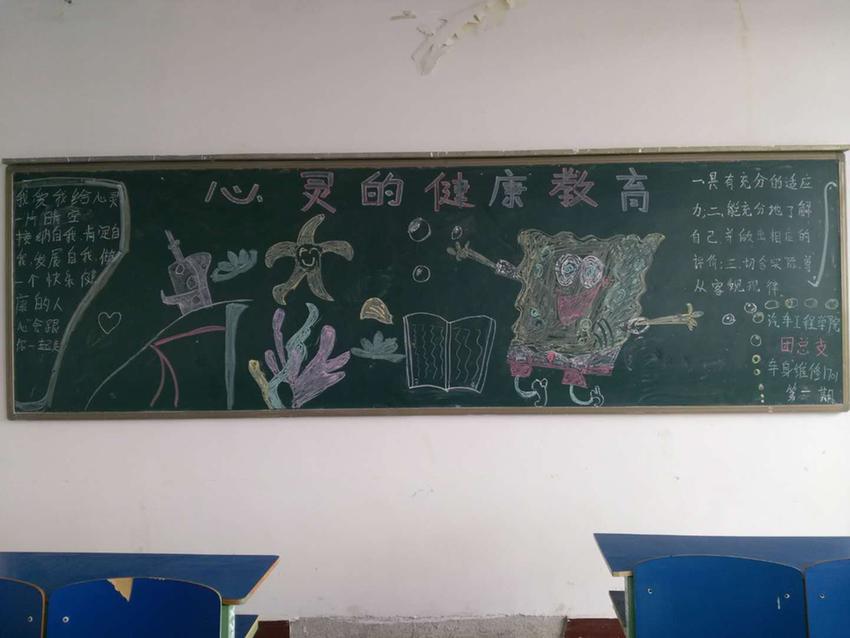 心灵的健康教育
我爱我给心灵
一片晴空
接纳自我、肯定自
我、发展自我、做
一个快乐健
康的人
心会跟
你一起走
一具有充分的适应
力;二、能充分地了解
自己、并做出相应的
评价;三、切合实际、尊
从客观规律
汽车工程学院
团总支
车身维修1701
第一期